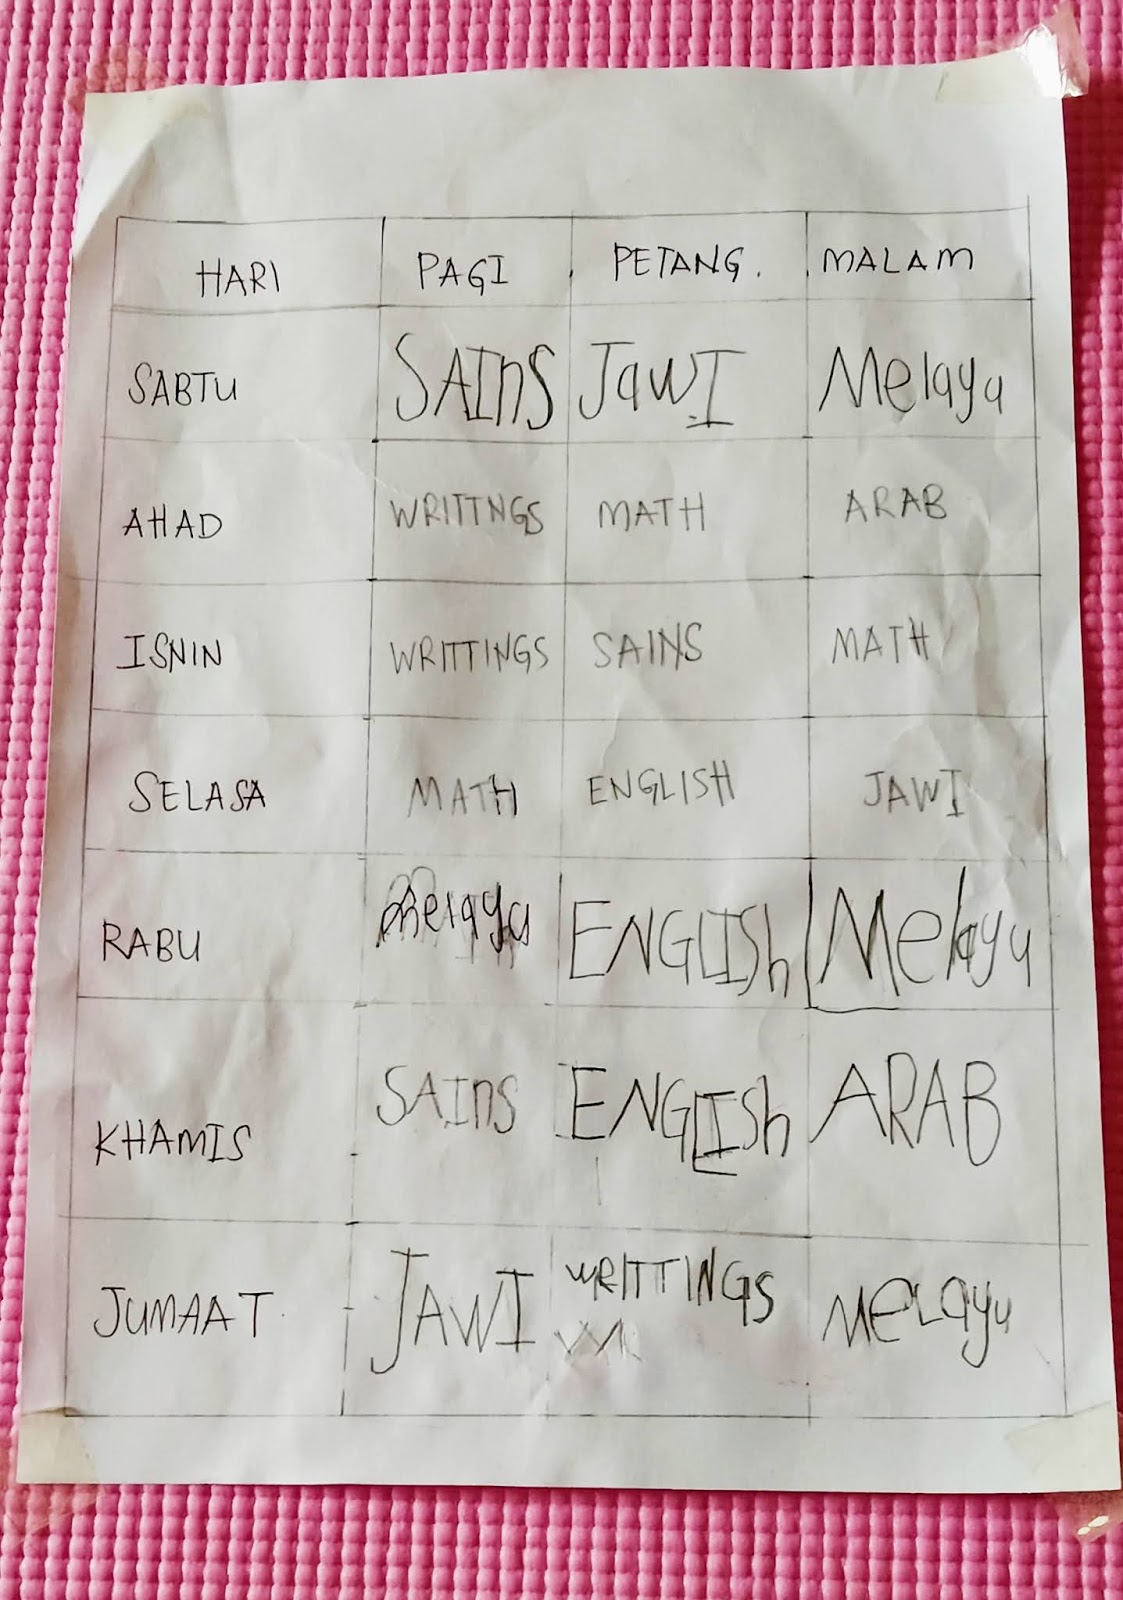 HARI PAGI PETANG. MALAM
SABTU SAInS JawI Melaya
AHAD WRITTNGS MATH ARAB
ISNIN WRITTINGS SAINS MATH
SELASA MATH ENGLISH JAWI
RABU Melaya ENGLISh Melayu
KHAMIS SAInS ENGLISh ARAB
JUMAAT JAWI wRITTINGS MeLayu